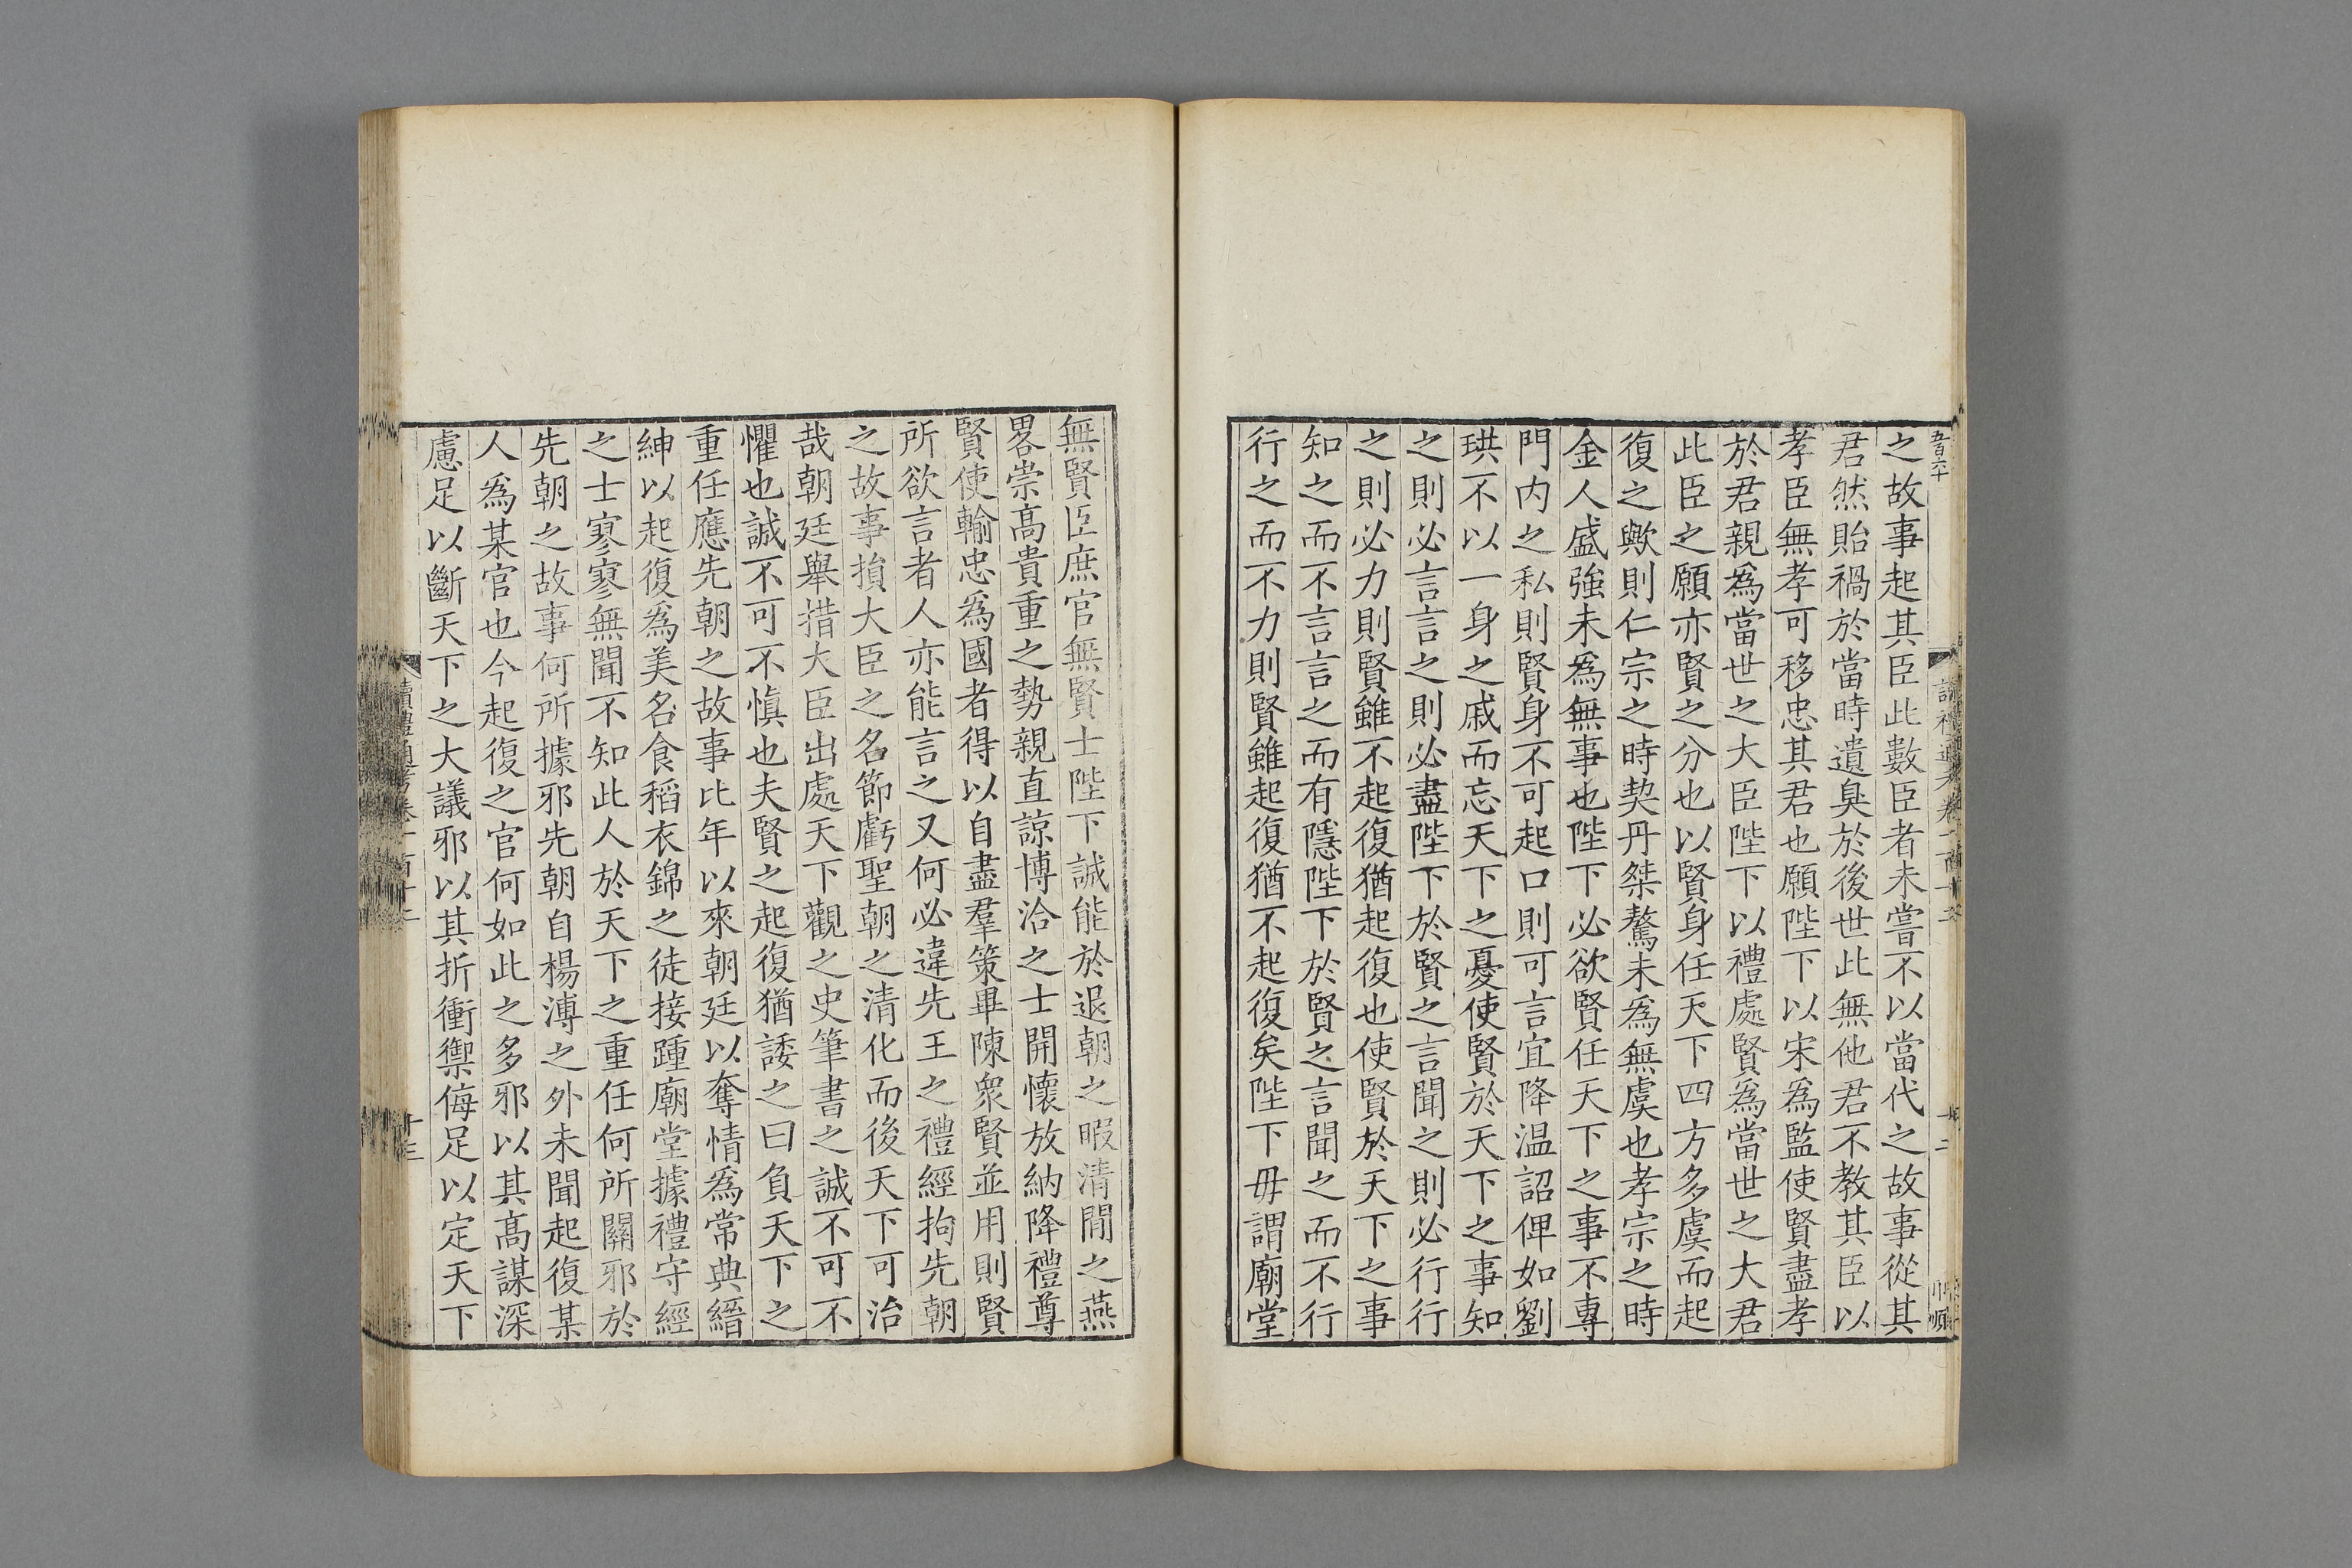 之故事起其臣此數臣者未嘗不以當代之故事從其
君然貽禍於當時遺臭於後世此無他君不教其臣以
孝臣無孝可移忠其君也願陛下以宋為監使賢盡孝
於君親為當世之大臣陛下以禮處賢為當世之大君
此臣之願亦賢之分也以賢身任天下四方多虞而起
復之歟則仁宗之時契丹桀驁未為無虞也孝宗之時
金人盛強未為無事也陛下必欲賢任天下之事不專
門内之私則賢身不可起口則可言宜降温詔俾如劉
珙不以一身之戚而忘天下之憂使賢於天下之事知
之則必言言之則必盡陛下於賢之言聞之則必行行
之則必力則賢雖不起復猶起復也使賢於天下之事
知之而不言言之而有隱陛下於賢之言聞之而不行
行之而不力則賢雖起復猶不起復矣陛下毋謂廟堂
無賢臣庶官無賢士陛下誠能於退朝之暇清閒之燕
畧崇高貴重之勢親直諒博洽之士開懷放納降禮尊
賢使輸忠為國者得以自盡羣策畢陳衆賢並用則賢
所欲言者人亦能言之又何必違先王之禮經拘先朝
之故事損大臣之名節虧聖朝之清化而後天下可治
哉朝廷舉措大臣出處天下觀之史筆書之誠不可不
懼也誠不可不愼也夫賢之起復猶諉之曰負天下之
重任應先朝之故事比年以來朝廷以奪情為常典縉
紳以起復為美名食稻衣錦之徒接踵廟堂據禮守經
之士寥寥無聞不知此人於天下之重任何所關邪於
先朝之故事何所據邪先朝自楊溥之外未聞起復某
人為某官也今起復之官何如此之多邪以其高謀深
慮足以斷天下之大議邪以其折衝禦侮足以定天下
讀禮通考卷一百十二
十三